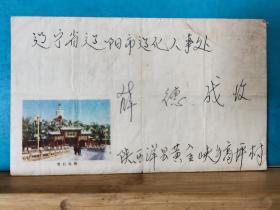 辽宁省辽阳市辽化人事处
薛德成收
陕西洋县黄金峡乡高坪村